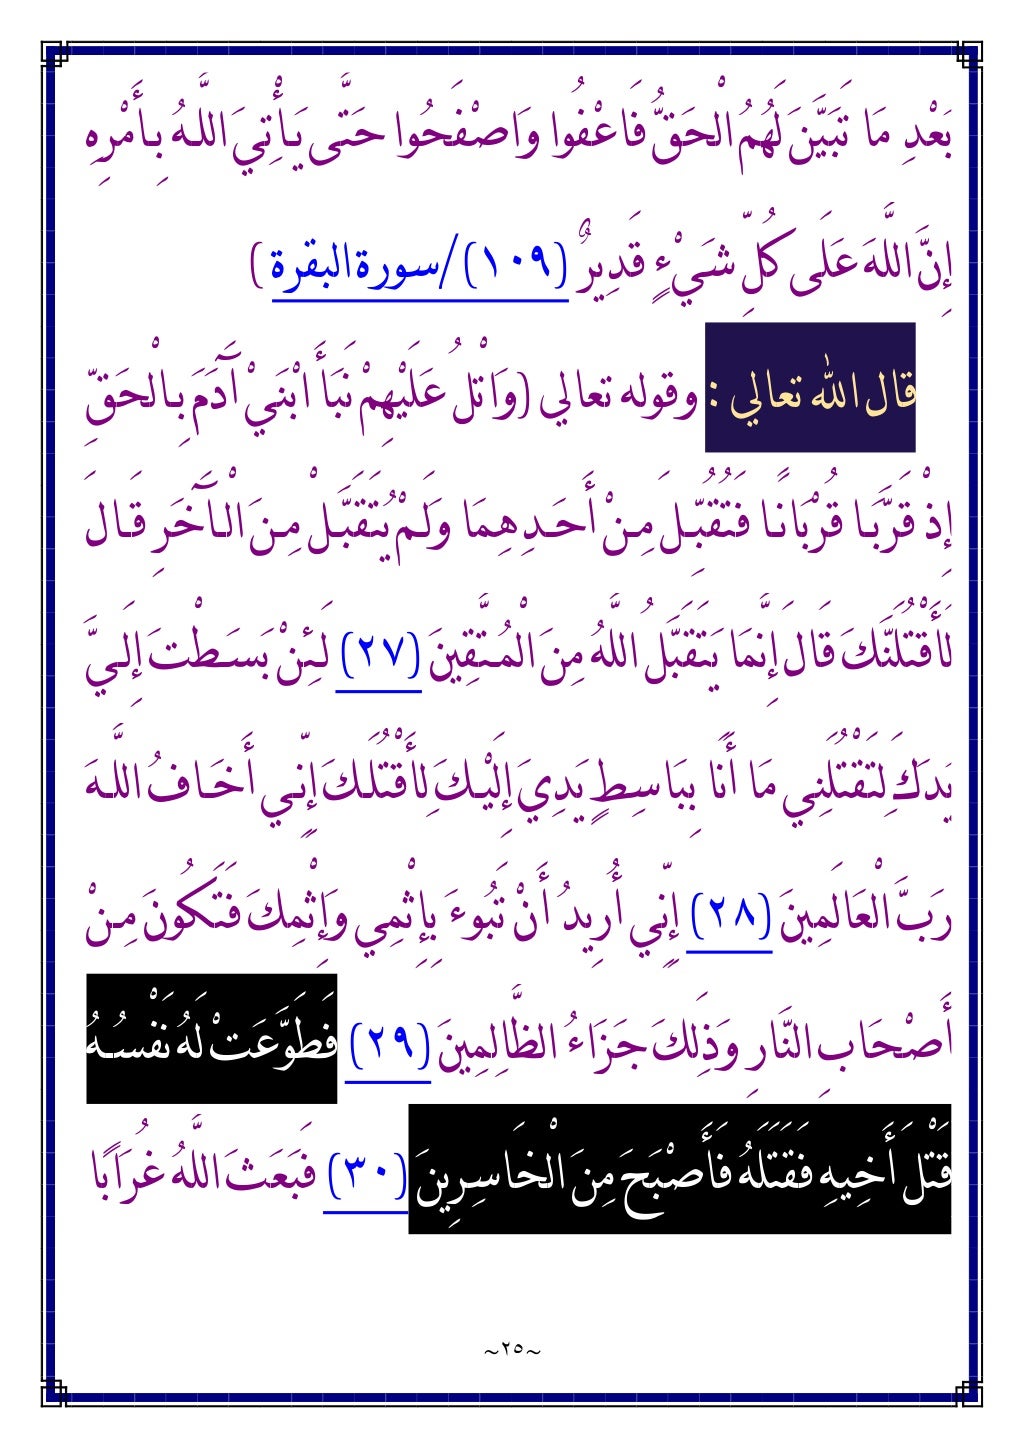 بَعْدِ مَا تَبَيَّنَ لَهُمُ الْحَقُّ فَاعْفُوا وَاصْفَحُوا حَتَّى يَأْتِيَ اللَّهُ بِأَمْرِهِ
إِنَّ اللَّهَ عَلَى كُلِّ شَيْءٍ قَدِيرٌ (١٠٩)/سورة البقرة )
قال الله تعالي : وقوله تعالي (وَاتْلُ عَلَيْهِمْ نَبَأَ ابْنَيْ آَدَمَ بِالْحَقِّ
إِذْ قَرَّبَا قُرْبَانًا فَتُقُبِّلَ مِنْ أَحَدِهِمَا وَلَمْ يُتَقَبَّلْ مِنَ الْآَخَرِ قَالَ
لَأَقْتُلَنَّكَ قَالَ إِنَّمَا يَتَقَبَّلُ اللَّهُ مِنَ الْمُتَّقِينَ (٢٧) لَئِنْ بَسَطْتَ إِلَيَّ
يَدَكَ لِتَقْتُلَنِي مَا أَنَا بِبَاسِطٍ يَدِيَ إِلَيْكَ لِأَقْتُلَكَ إِنِّي أَخَافُ اللَّهَ
رَبَّ الْعَالَمِينَ (٢٨) إِنِّي أُرِيدُ أَنْ تَبُوءَ بِإِثْمِي وَإِثْمِكَ فَتَكُونَ مِنْ
أَصْحَابِ النَّارِ وَذَلِكَ جَزَاءُ الظَّالِمِينَ (٢٩) فَطَوَّعَتْ لَهُ نَفْسُهُ
قَتْلَ أَخِيهِ فَقَتَلَهُ فَأَصْبَحَ مِنَ الْخَاسِرِينَ (٣٠) فَبَعَثَ اللَّهُ غُرَابًا
~٢٥~